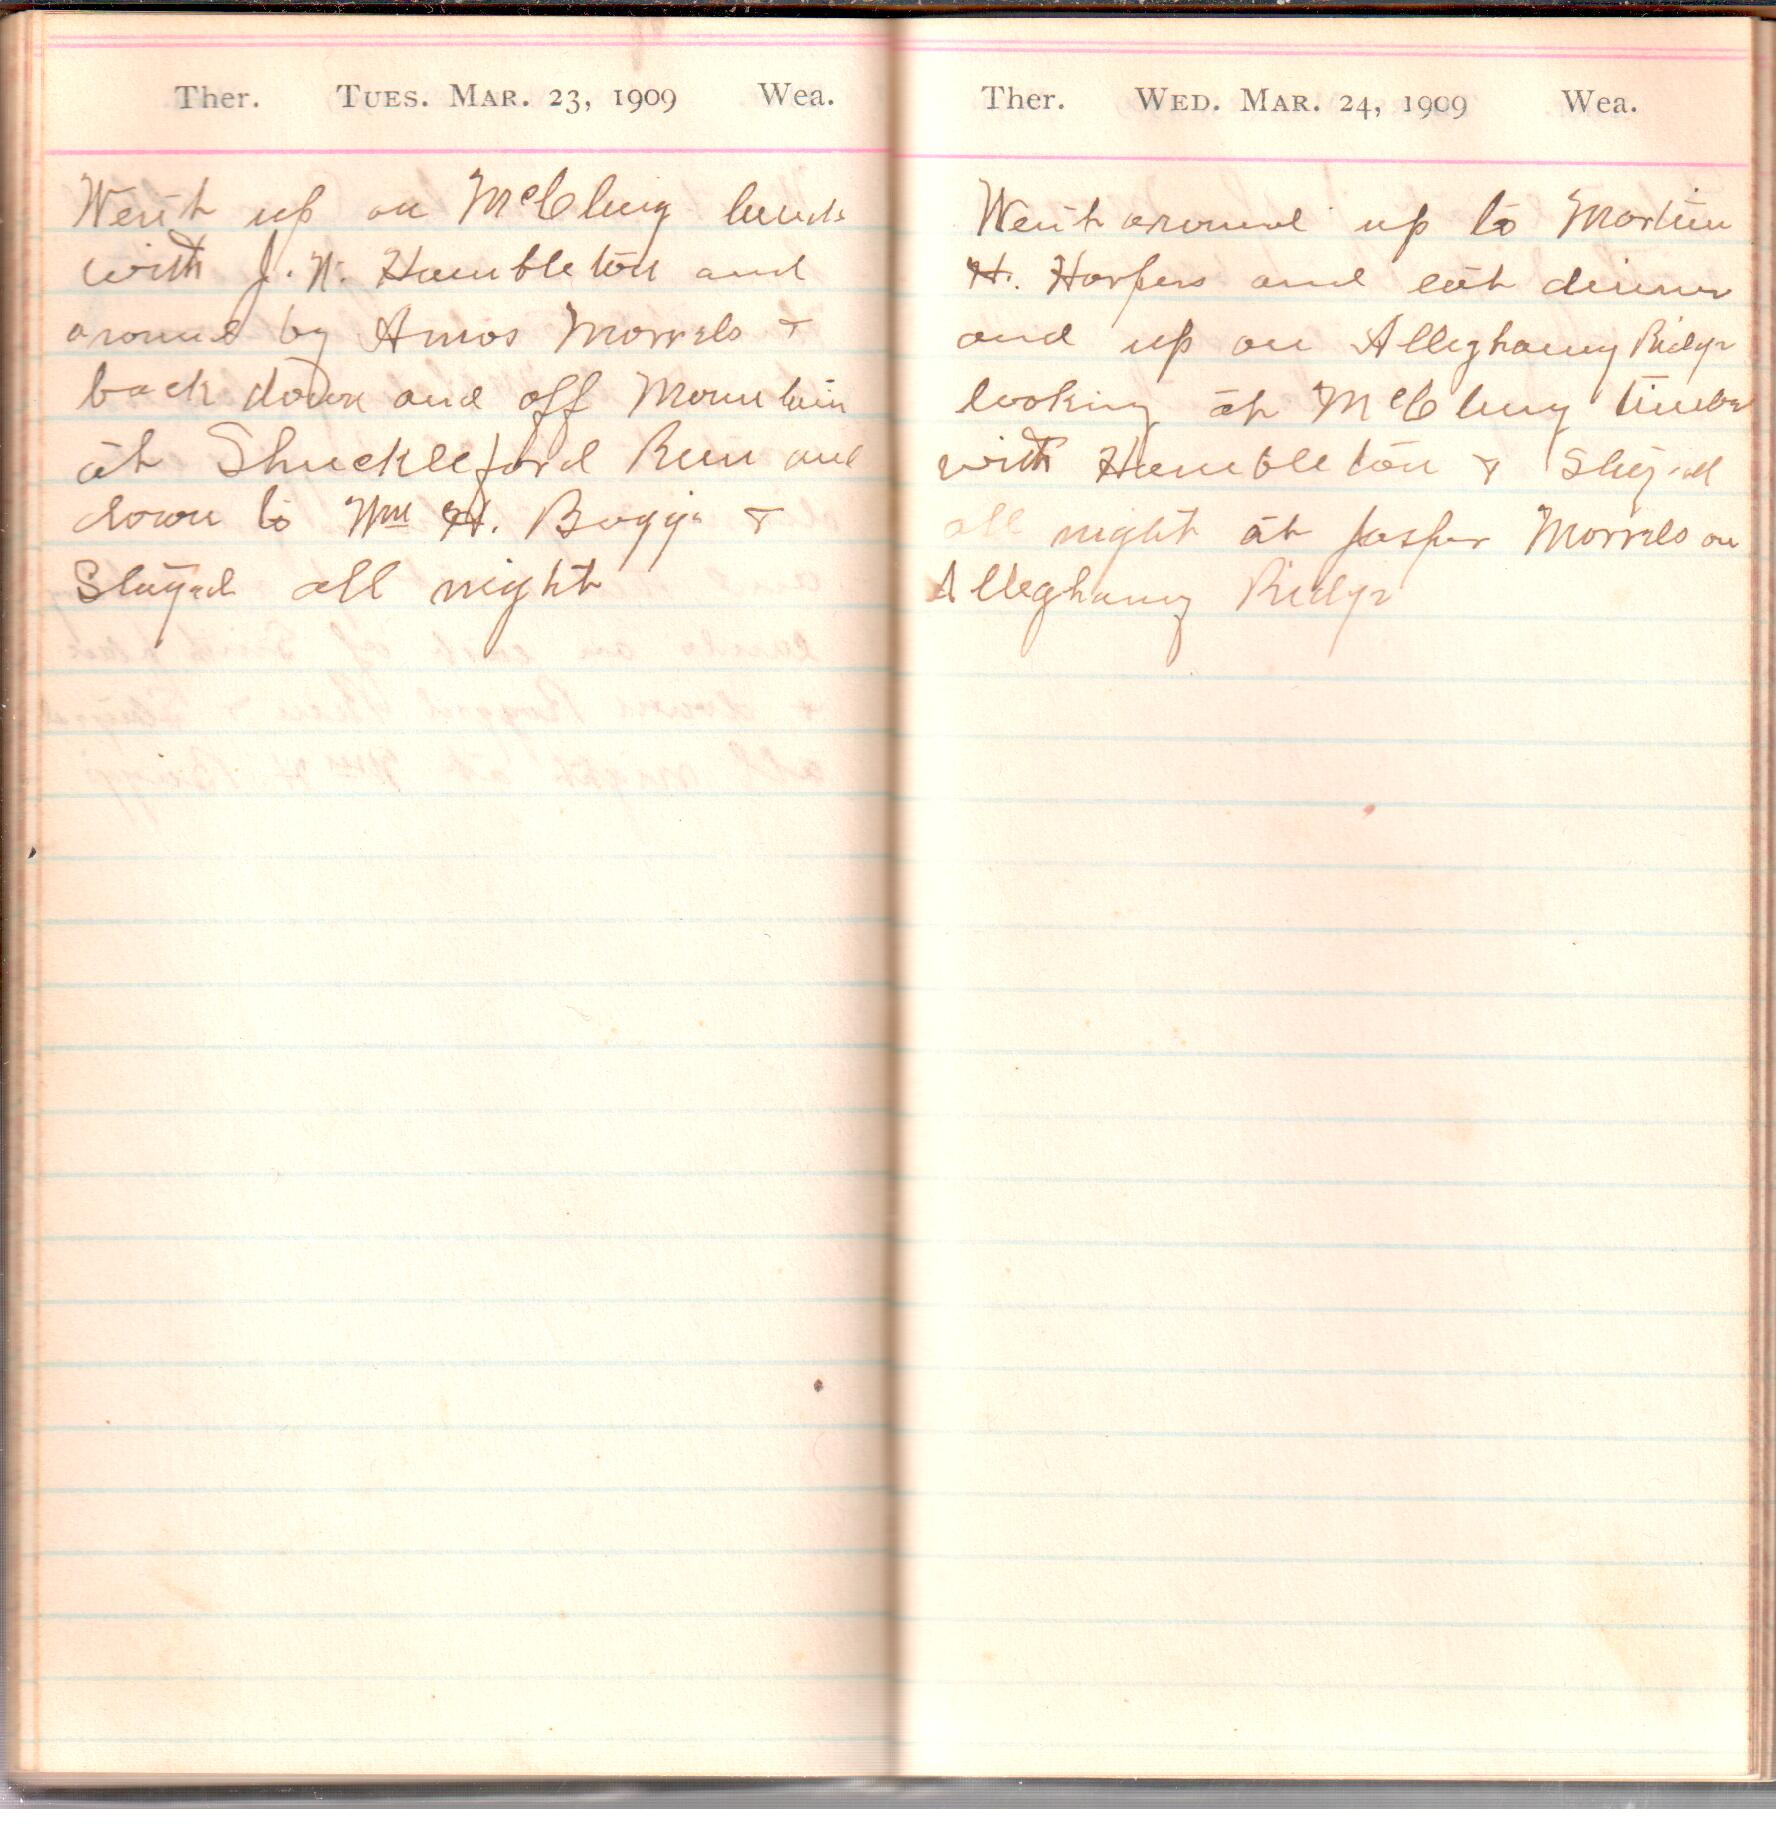 Ther. TUES. MAR. 23, 1909 Wea.
Went up on McClung lands
with J. N. Hambleton and
around by Amos Morrels &
back down and off Mountain
at Shuckleford Run and
down to Wm H. Boggs &
Stayed all night
Ther. WED. MAR. 24, 1909 Wea.
Went around up to Martin
H. Harpers and eat dinner
and up on Alleghany Ridge
looking at McClung timber
with Hambleton & Stayed
all night at Jasper Morrels on
Alleghany Ridge